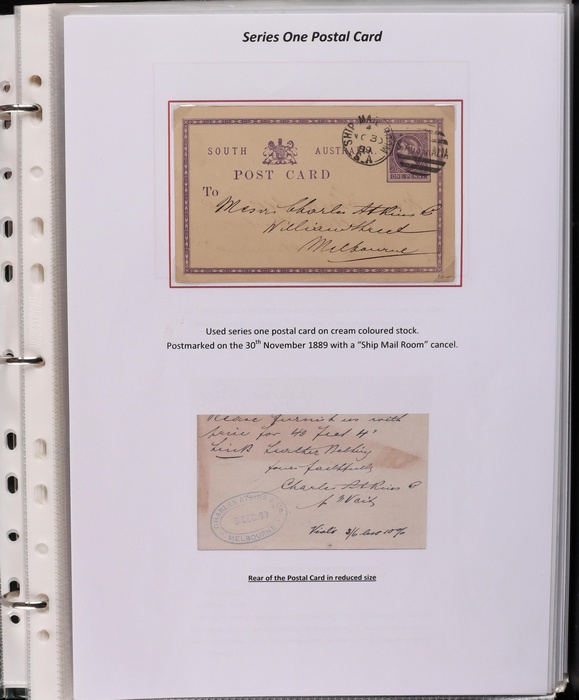 Series One Postal Card
SHIP MAIL ROOM
S.A
SOUTH AUSTRALIA
ONE PENNY
POST CARD
To
Messrs Charles Atkins & Co
William Street
Melbourne
Used series one postal card on cream coloured stock.
Postmarked on the 30th November 1889 with a “Ship Mail Room” cancel.
Please furnish us with
price for 40 feet 4"
Leather
yours faithfully
Charles Atkins & Co
CHARLES ATKINS
MELBOURNE
2/6 less 10%
Rear of the Postal Card in reduced size